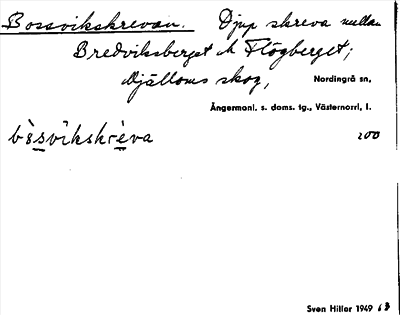 Bossvikskrevan. Djup skreva mellan
Bredviksberget och Flögberget;
Mjälloms skog,
Nordingrå sn,
Ångermanl. s. doms. tg., Västernorrl. l.
bòsvìkskrèva 200
Sven Hillar 1949 63